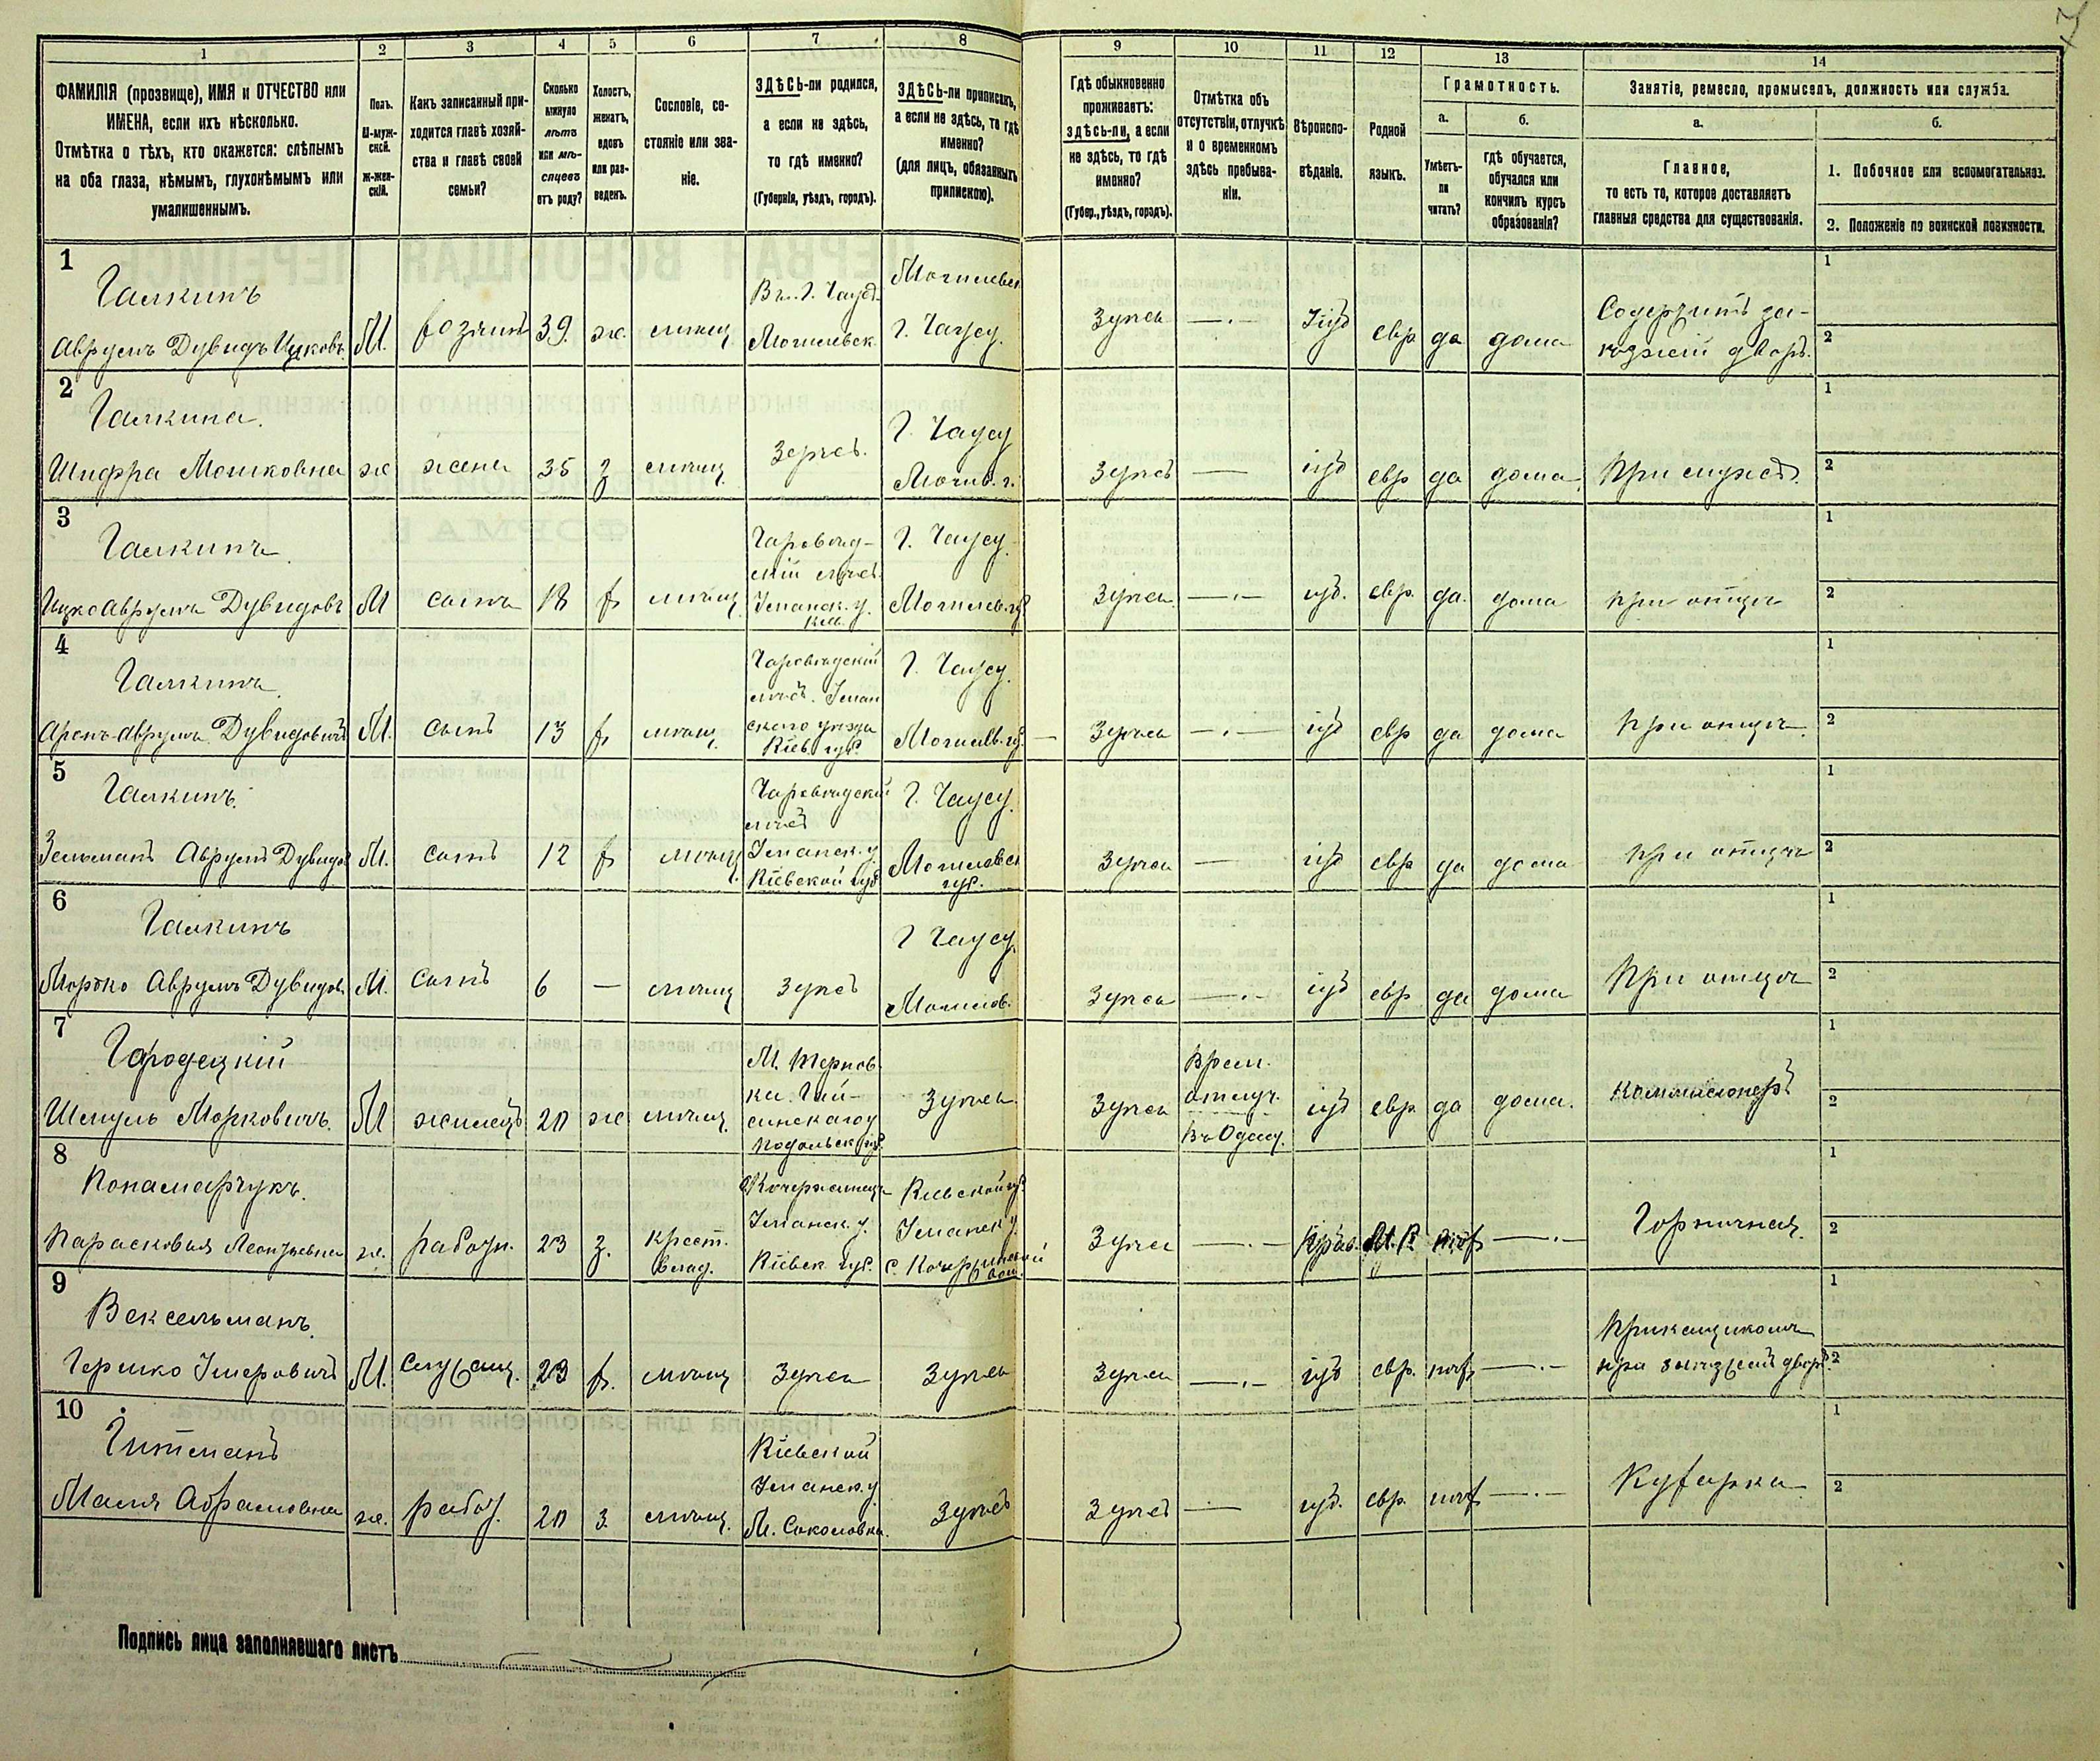 1
2
3
4
5
6
7
8
9
10
11
12
13
14
ФАМИЛІЯ (прозвище), ИМЯ и ОТЧЕСТВО или
ИМЕНА, если ихъ нѣсколько.
Отмѣтка о тѣхъ, кто окажется: слѣпымъ
на оба глаза, нѣмымъ, глухонѣмымъ или
умалишеннымъ.
Полъ.
М-муж-
ской.
Ж-жен-
скій.
Какъ записанный при-
ходится главѣ хозяй-
ства и главѣ своей
семьи?
Сколько
минуло
лѣтъ
или мѣ-
сяцевъ
отъ роду?
Холостъ,
женатъ,
вдовъ
или раз-
веденъ.
Сословіе, со-
стояніе или зва-
ніе.
ЗДѢСЬ-ли родился,
а если не здѣсь,
то гдѣ именно?
(Губернія, уѣздъ, городъ).
ЗДѢСЬ-ли приписанъ,
а если не здѣсь, то гдѣ
именно?
(для лицъ, обязанныхъ
припискою).
Гдѣ обыкновенно
проживаетъ:
здѣсь-ли, а если
не здѣсь, то гдѣ
именно?
(Губер., уѣздъ, городъ).
Отмѣтка объ
отсутствіи, отлучкѣ
и о временномъ
здѣсь пребыва-
ніи.
Вѣроиспо-
вѣданіе.
Родной
языкъ.
Грамотность.
а.
Умѣетъ-
ли
читать?
б.
гдѣ обучается,
обучался или
кончилъ курсъ
образованія?
Занятіе, ремесло, промыселъ, должность или служба.
а.
Главное,
то есть то, которое доставляетъ
главныя средства для существованія.
б.
1. Побочное или вспомогательное.
2. Положеніе по воинской повинности.
1
Галкинъ
Аврумъ Дувидъ Ицковъ М. хозяинъ 39. ж. мѣщ.
Могилевск.
г. Чаусу.
Здѣсь —.— Іуд евр да дома
Содержитъ за-
ѣзжій дворъ.
1
2
2
Галкина.
Шифра Мошковна ж жена 35 з мѣщ. Здѣсь.
Г. Чаусу
Могил. г.
Здѣсь — іуд евр да дома. При мужѣ.
1
2
3
Галкинъ
Ицко Аврумъ Дувидовъ М сынъ 18 х мѣщ
Уманск. у.
Кіев.
Г. Чаусу
Могилев. г.
Здѣсь —.— іуд. евр. да. дома при отцѣ
1
2
4
Галкинъ
Аронъ-Аврумъ Дувидовичъ М. сынъ 13 х мѣщ.
Уман
скаго уѣзда
Кіев. губ.
Г. Чаусу.
Могилев. г.
Здѣсь —.— іуд евр да дома при отцѣ.
1
2
5
Галкинъ.
Зельманъ Аврумъ Дувидов М. сынъ 12 х мѣщ.
Уманск. у.
Кіевской губ.
Г. Чаусу.
Могилевск
губ.
Здѣсь — іуд евр да дома при отцѣ
1
2
6
Галкинъ
Мортко Аврумъ Дувидов. М. сынъ 6 — мѣщ здѣсь
Г Чаусу.
Могилев.
Здѣсь —.— іуд евр да дома При отцѣ
1
2
7
Городецкій
Шмуль Морковичъ. М жилецъ 20 ж мѣщ.
М. Тернов-
ка. Гай-
синскаго у
Подольск. губ.
Здѣсь.
Здѣсь
Врем.
отлуч.
Въ Одессу.
іуд евр да дома. Коммисіонеръ
1
2
8
Понамарчукъ.
Парасковья Леонтьевна ж. работн. 23 з.
крест.
влад.
Уманск. у.
Кіевск. губ.
Кіевской г.
Уманск у.
Здѣсь —.— Прав. М. Р. нѣт —.— Горничная.
1
2
9
Вексельманъ.
Гершко Умеровичъ М. служащ. 23 х. мѣщ Здѣсь Здѣсь
Здѣсь —.— іуд евр. нѣт —.—
Прикащикомъ
при заѣзжемъ дворѣ.
1
2
10
Гитманъ
Малня Абрамовна ж. работ. 20 з. мѣщ.
Кіевской
Уманск. у
М. Соколовка.
Здѣсь
Здѣсь — іуд. евр. нѣт —.— Кухарка
1
2
Подпись лица заполнявшаго листъ